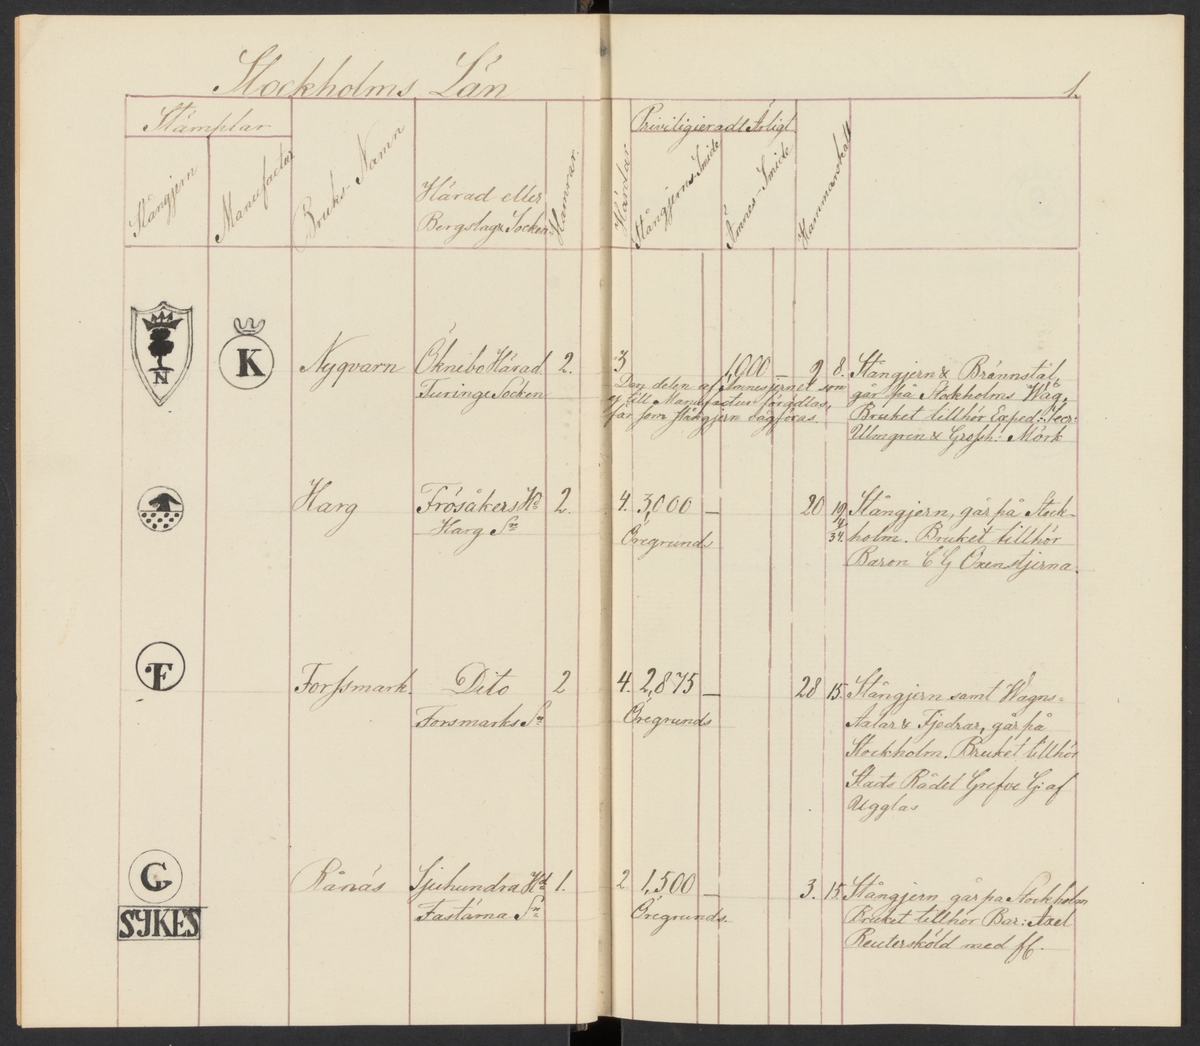 Stockholms Län
1.
Stämplar
Stångjern
Manufactur
Bruks-Namn
Härad eller
Bergslag & Socken
Hamrar.
Härdar
Priviligieradt Årligt
Stångjerns Smide
Ämnes-Smide
Hammarskatt
N
K
Nyqvarn
Öknebo Härad
Turinge Socken
2.
3
1,000 —
2
8.
Den delen af Ämnesjernet som
ej till Manufactur förädlas,
får som stångjern vågföras.
Stångjern & Brännstål,
går på Stockholms Våg.
Bruket tillhör Exped: Secr:
Ulmgren & Grossh: Mörk
Harg
Frösåkers Hd
Harg Sn
2.
4.
3,000 —
Öregrunds
20
Stångjern, går på Stock-
holm. Bruket tillhör
Baron C G Oxenstjerna.
F
Forssmark.
Dito
Forsmarks Sn
2
4.
2,875 —
Öregrunds
28
15.
Stångjern samt Wagns-
Axlar & Fjedrar, går på
Stockholm. Bruket tillhör
Stats Rådet Grefve G: af
Ugglas
G
SYKES
Rånäs
Sjuhundra Hd
Fastärna Sn
1.
2
1,500 —
Öregrunds.
3.
15.
Stångjern går på Stockholm
Bruket tillhör Bar: Axel
Reutersköld med fl.